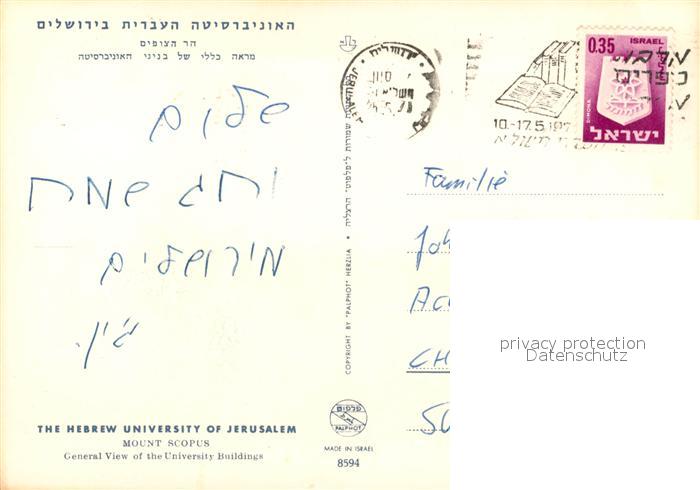 האוניברסיטה העברית בירושלים
הר הצופים
מראה כללי של בניני האוניברסיטה
שלום
וחג שמח
מירושלים
THE HEBREW UNIVERSITY OF JERUSALEM
MOUNT SCOPUS
General View of the University Buildings
COPYRIGHT BY "PALPHOT" HERZLIA • שמורות ל"פלפוט" הרצליה
פלפוט
PALPHOT
MADE IN ISRAEL
8594
ירושלים
JERUSALEM
10.-17.5.197
0.35 ISRAEL
DIMONA
ישראל
Familie
CH
privacy protection
Datenschutz